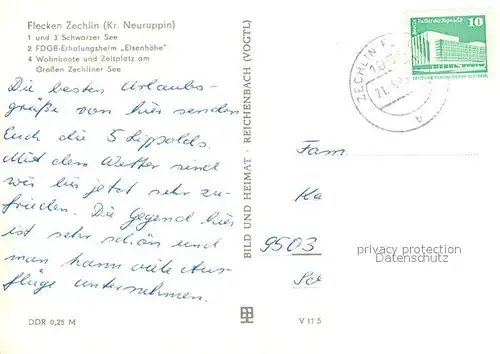 Flecken Zechlin (Kr. Neuruppin)
1 und 3 Schwarzer See
2 FDGB-Erholungsheim „Elsenhöhe"
4 Wohnboote und Zeltplatz am
Großen Zechliner See
Die besten Urlaubs-
grüße von hier senden
Euch die 5 Lippolds.
Mit dem Wetter sind
wir bis jetzt sehr zu-
frieden. Die Gegend hier
ist sehr schön und
man kann viele Aus-
flüge unternehmen.
DDR 0,25 M
BILD UND HEIMAT · REICHENBACH (VOGTL)
V 11 5
10
ZECHLIN
Fam.
9503
privacy protection
Datenschutz